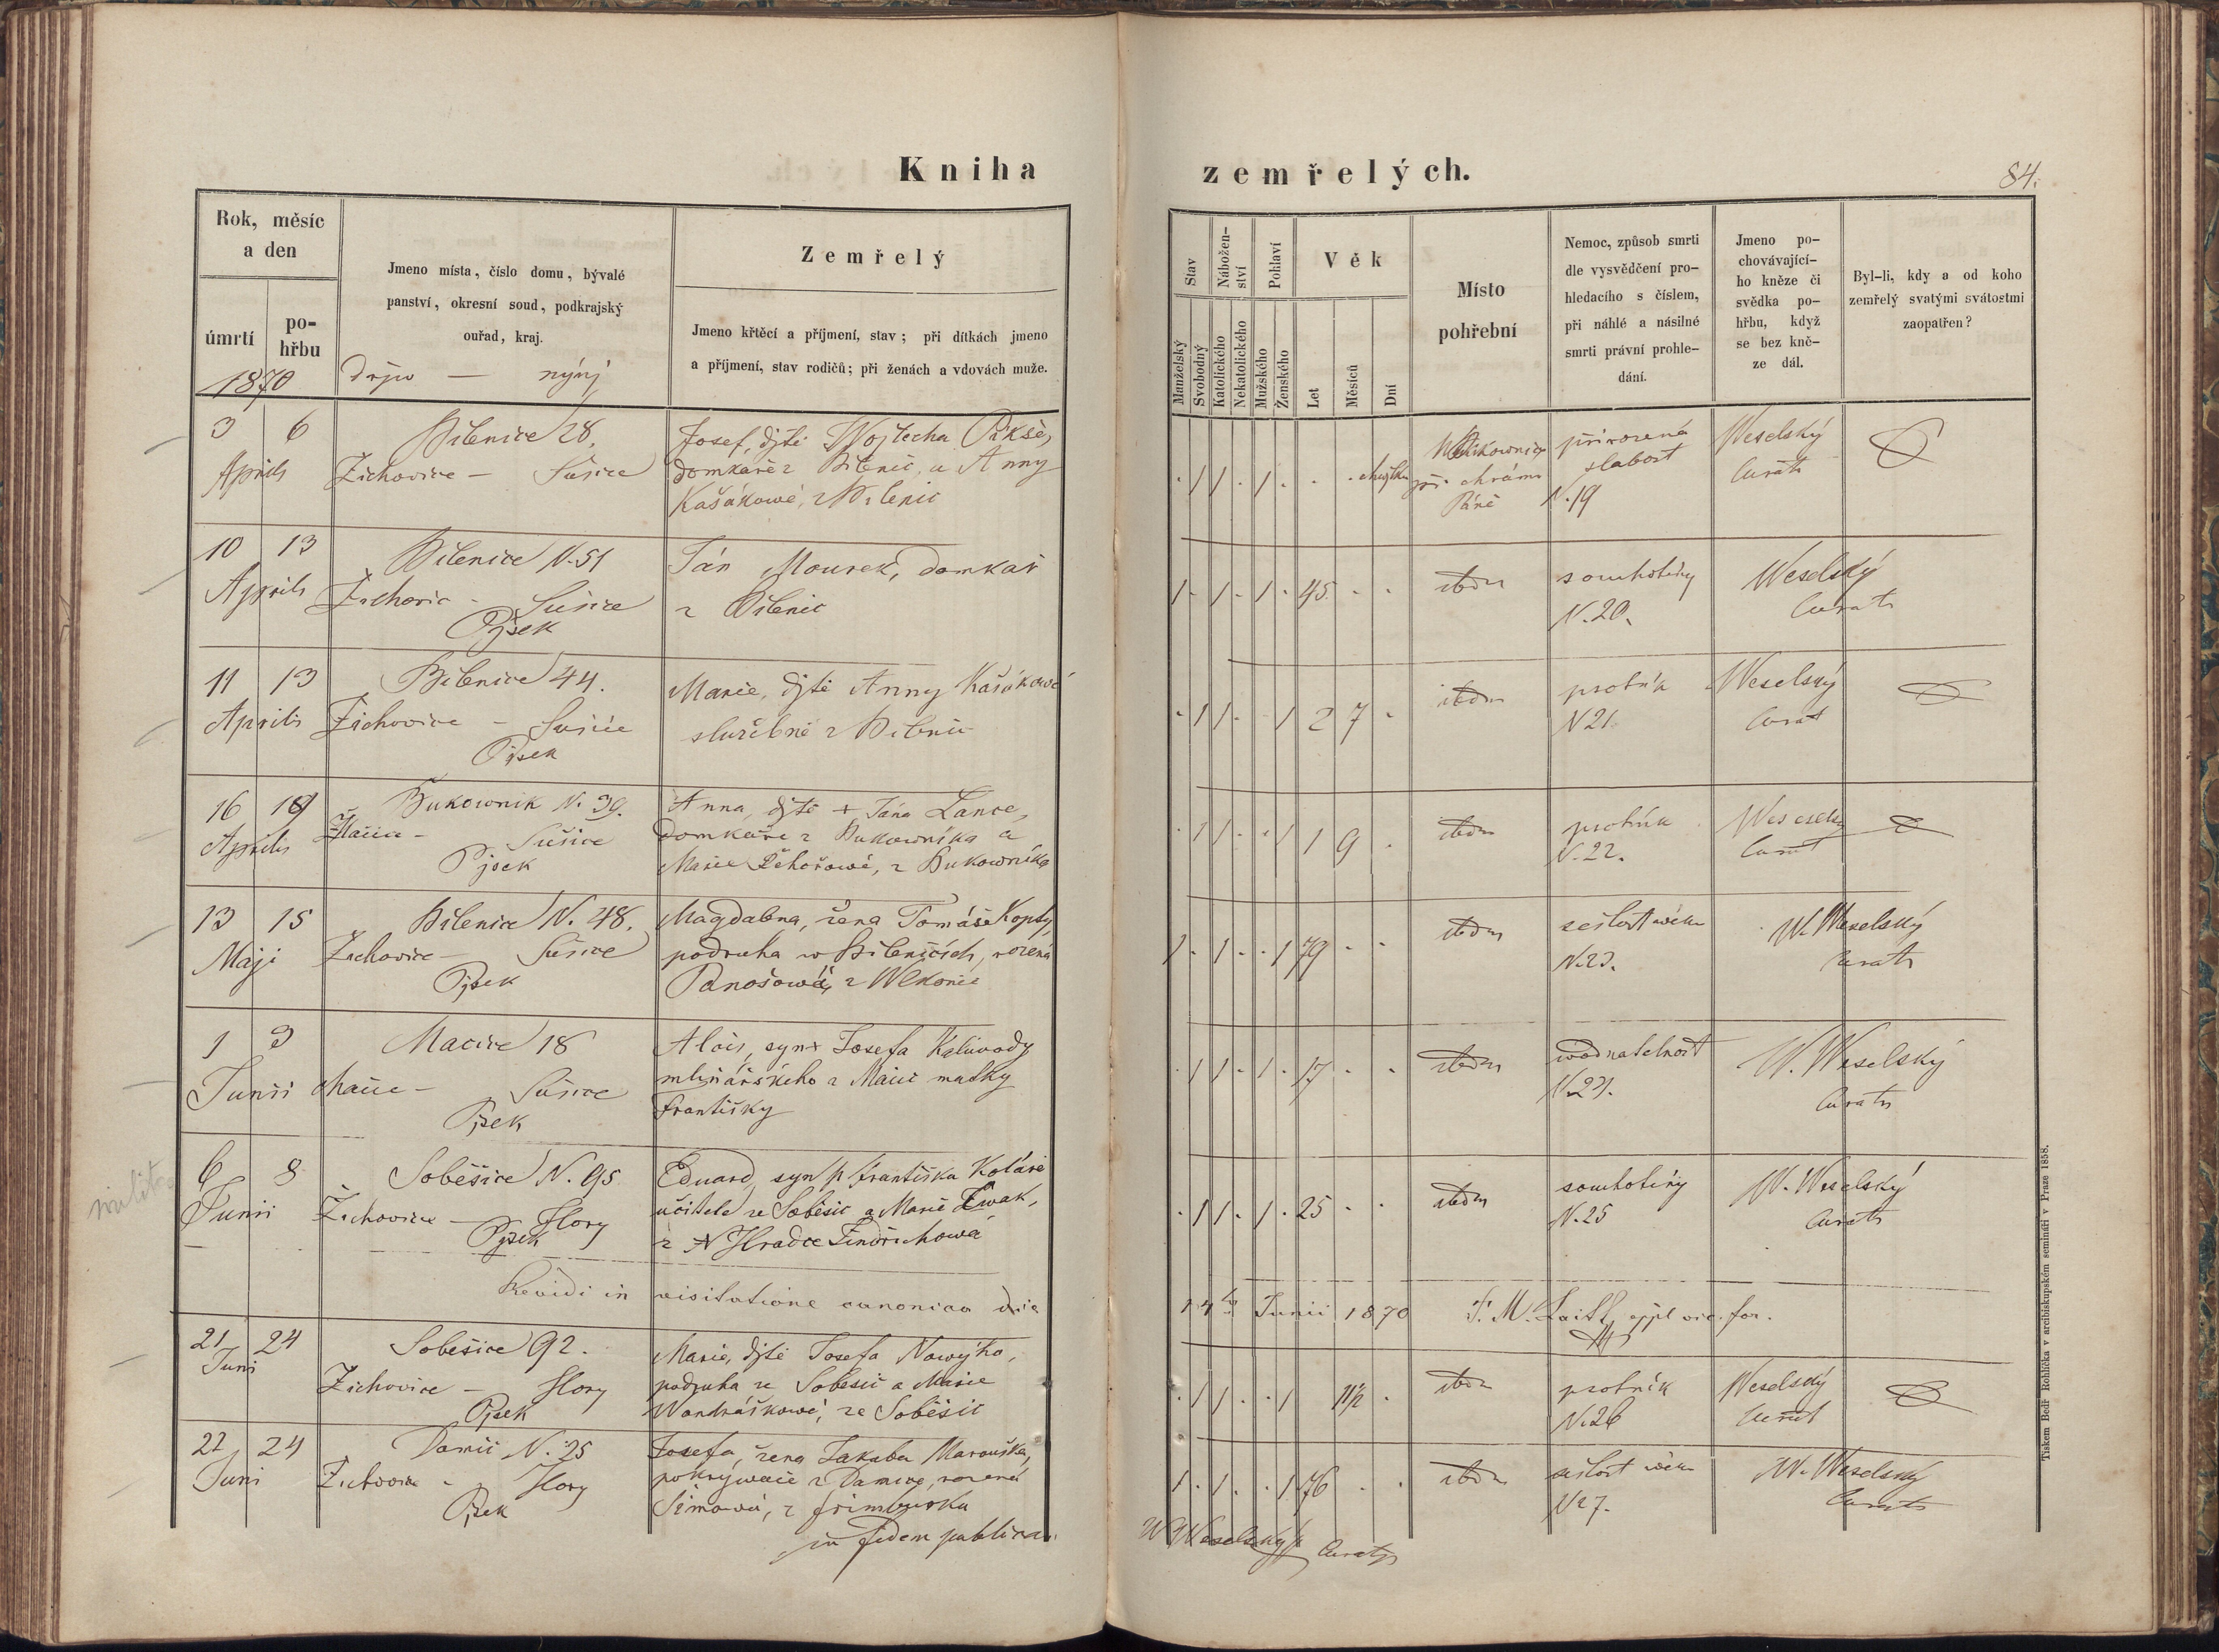 Kniha zemřelých.
84.
Rok, měsíc
a den
úmrtí
po-
hřbu
1870
Jmeno místa, číslo domu, bývalé
panství, okresní soud, podkrajský
ouřad, kraj.
dřjw — nýnj
Zemřelý
Jmeno křtěcí a příjmení, stav; při dítkách jmeno
a příjmení, stav rodičů; při ženách a vdovách muže.
Stav
Nábožen-
ství
Pohlaví
Věk
Manželský
Svobodný
Katolického
Nekatolického
Mužského
Ženského
Let
Měsíců
Dní
Místo
pohřební
Nemoc, způsob smrti
dle vysvědčení pro-
hledacího s číslem,
při náhlé a násilné
smrti právní prohle-
dání.
Jmeno po-
chovávající-
ho kněze či
svědka po-
hřbu, když
se bez kně-
ze dál.
Byl-li, kdy a od koho
zemřelý svatými svátostmi
zaopatřen?
3 6
Aprils
Bilenice 28.
Žichovice — Sušice
Josef, djtě Wojtecha Pikše,
domkaře z Bilenic, a Anny
Kašákowé, z Bilenic
. 1 1 . 1 . . .
při chrámu
Páně
přirozená
slabost
N. 19
Weselský
Curats
10 13
Aprils
Bilenice N. 51
Žichovic - Sušice
Pjsek
Ján Mourek, domkař
z Bilenic
1 . 1 . 1 . 45 . .
ibdm
souchotiny
N. 20.
Weselský
Curats
11 13
Aprilis
Bilenice 44.
Žichovice — Sušice
Pjsek
Marie, djtě Anny Kašákowé
služebné z Bilenic
. 1 1 . . 1 2 7 .
ibdm
psotnik
N 21.
Weselský
Curat
16 19
Aprilis
Bukownik N. 39.
Sušice
Pjsek
Anna, djtě + Jána Lance,
domkaře z Bukowníka a
Marie Řehořowé, z Bukowníka
. 1 1 . . 1 1 9 .
ibdm
psotník
N. 22.
Weselsky
Curat
13 15
Maji
Bilenice N. 48.
Žichovice — Sušice
Pjsek
Magdalena, žena Tomáše Kopty,
podruha w Bilenicích, rozená
Panošowá, z Wlkonic
1 . 1 . . 1 79 . .
ibdm
sešlost wěku
N. 23.
W. Weselský
Curats
1 3
Junii
Macice 18
Macice — Sušice
Pjsek
Alois, syn + Josefa Kaliwody
mlynářského z Macic matky
Františky
. 1 1 . 1 . 17 . .
ibdm
wodnatelnost
N. 24.
W. Weselský
Curats
6 8
Junii
Soběšice N. 95
Žichovice — Hory
Pjsek
Eduard, syn p Františka Koláře
učitele ze Soběšic a Marie
z Hradce Jindřichowa
. 1 1 . 1 . 25 . .
ibdm
souchotiny
N. 25
W. Weselský
Curats
Revidi in visitatione canonica die 14 Junii 1870
21 24
Juni
Soběšice 92.
Žichovice — Hory
Pjsek
Marie, djtě Josefa Nowýho,
podruha ze Soběšic a Marie
Wondráškowé, ze Soběšic
. 1 1 . . 1 11½ .
ibdm
psotník
N. 26
Weselský
Curat
22 24
Juni
Damič N. 25
Žichovice - Hory
Pjsek
Josefa, žena Jakuba Marouška,
pokrýwače z Damice, rozená
Šimowá, z Frimburka
1 . 1 . . 1 76 . .
ibdm
sešlost wěku
N 27.
W. Weselský
Curats
in fidem publicam
W Weselský Curats
Tiskem Bedř Rohlíčka v arcibiskupském semináři v Praze 1858.